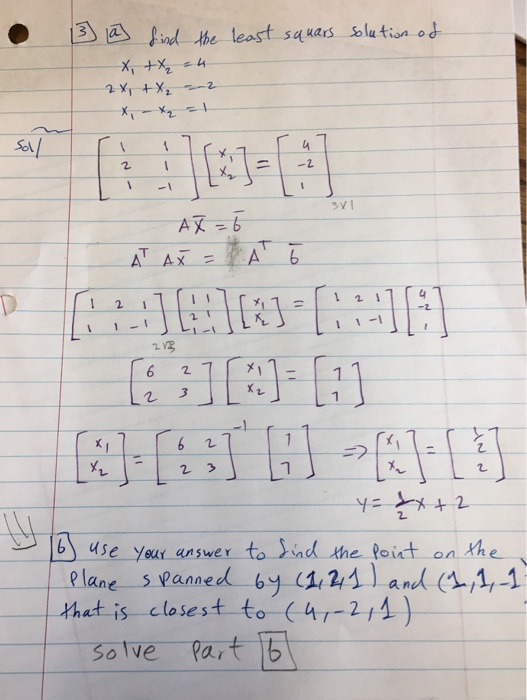 3 a find the least squars solution of
x₁ + x₂ = 4
2x₁ + x₂ = -2
x₁ - x₂ = 1
Sol/
[1 1; 2 1; 1 -1] [x₁; x₂] = [4; -2; 1]
3×1
A x̄ = b̄
Aᵀ A x̄ = Aᵀ b̄
[1 2 1; 1 1 -1] [1 1; 2 1; 1 -1] [x₁; x₂] = [1 2 1; 1 1 -1] [4; -2; 1]
2×3
[6 2; 2 3] [x₁; x₂] = [7; 7]
[x₁; x₂] = [6 2; 2 3]⁻¹ [7; 7] ⇒ [x₁; x₂] = [1/2; 2]
y = 1/2 x + 2
b use your answer to find the point on the
Plane spanned by (1,2,1) and (1,1,-1)
that is closest to (4,-2,1)
solve part b